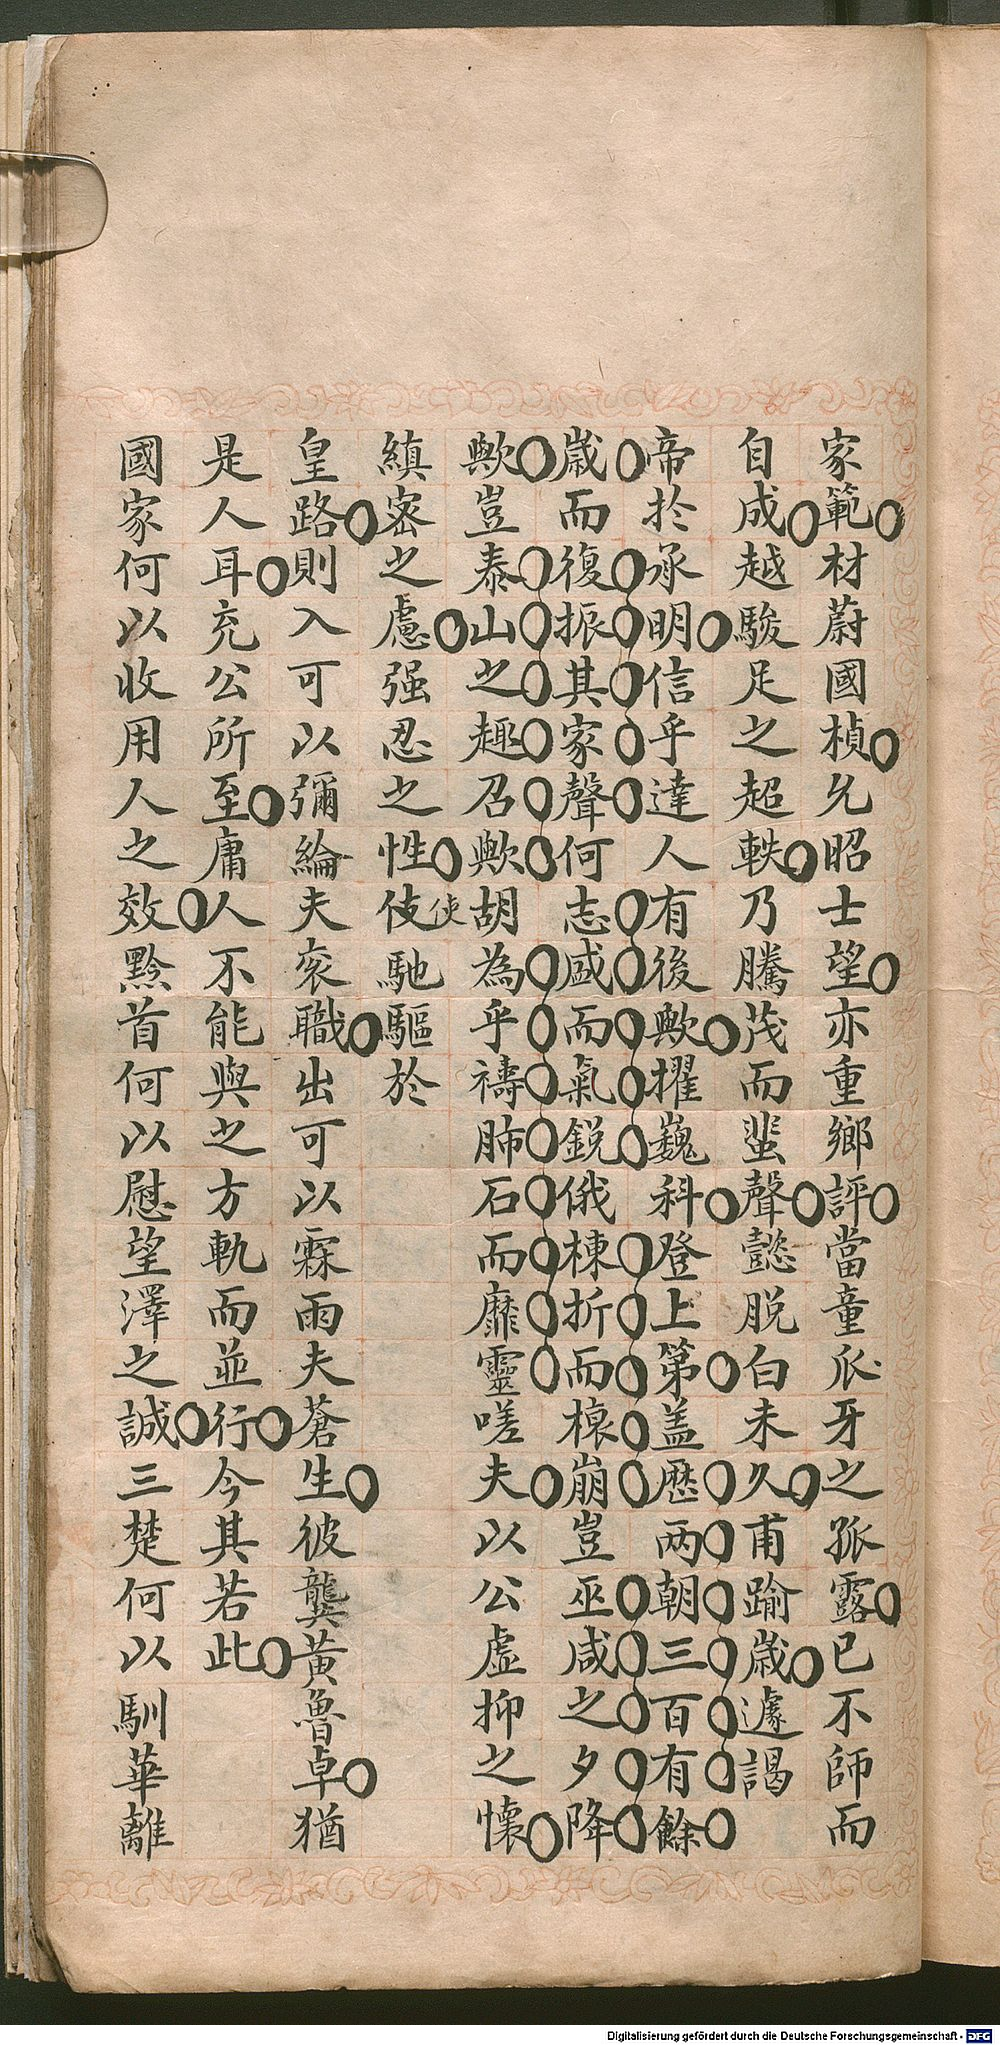 家範材蔚國楨允昭士望亦重鄉評當童丱牙之孤露已不師而
自成越駿足之超軼乃騰茂而蜚聲懿脱白未久甫踰歲遽謁
帝於承明信乎達人有後歟擢巍科登上第盖歷两朝三百有餘
歲而復振其家聲何志盛而氣銳俄棟折而榱崩豈巫咸之夕降
歟豈泰山之趣召歟胡為乎禱肺石而靡靈嗟夫以公虛抑之懷
縝密之慮强忍之性伎使馳驅於
皇路則入可以彌綸夫衮職出可以霖雨夫蒼生彼龔黃魯卓猶
是人耳充公所至庸人不能與之方軌而並行今其若此
國家何以收用人之效黔首何以慰望澤之誠三楚何以馴華離
Digitalisierung gefördert durch die Deutsche Forschungsgemeinschaft - DFG